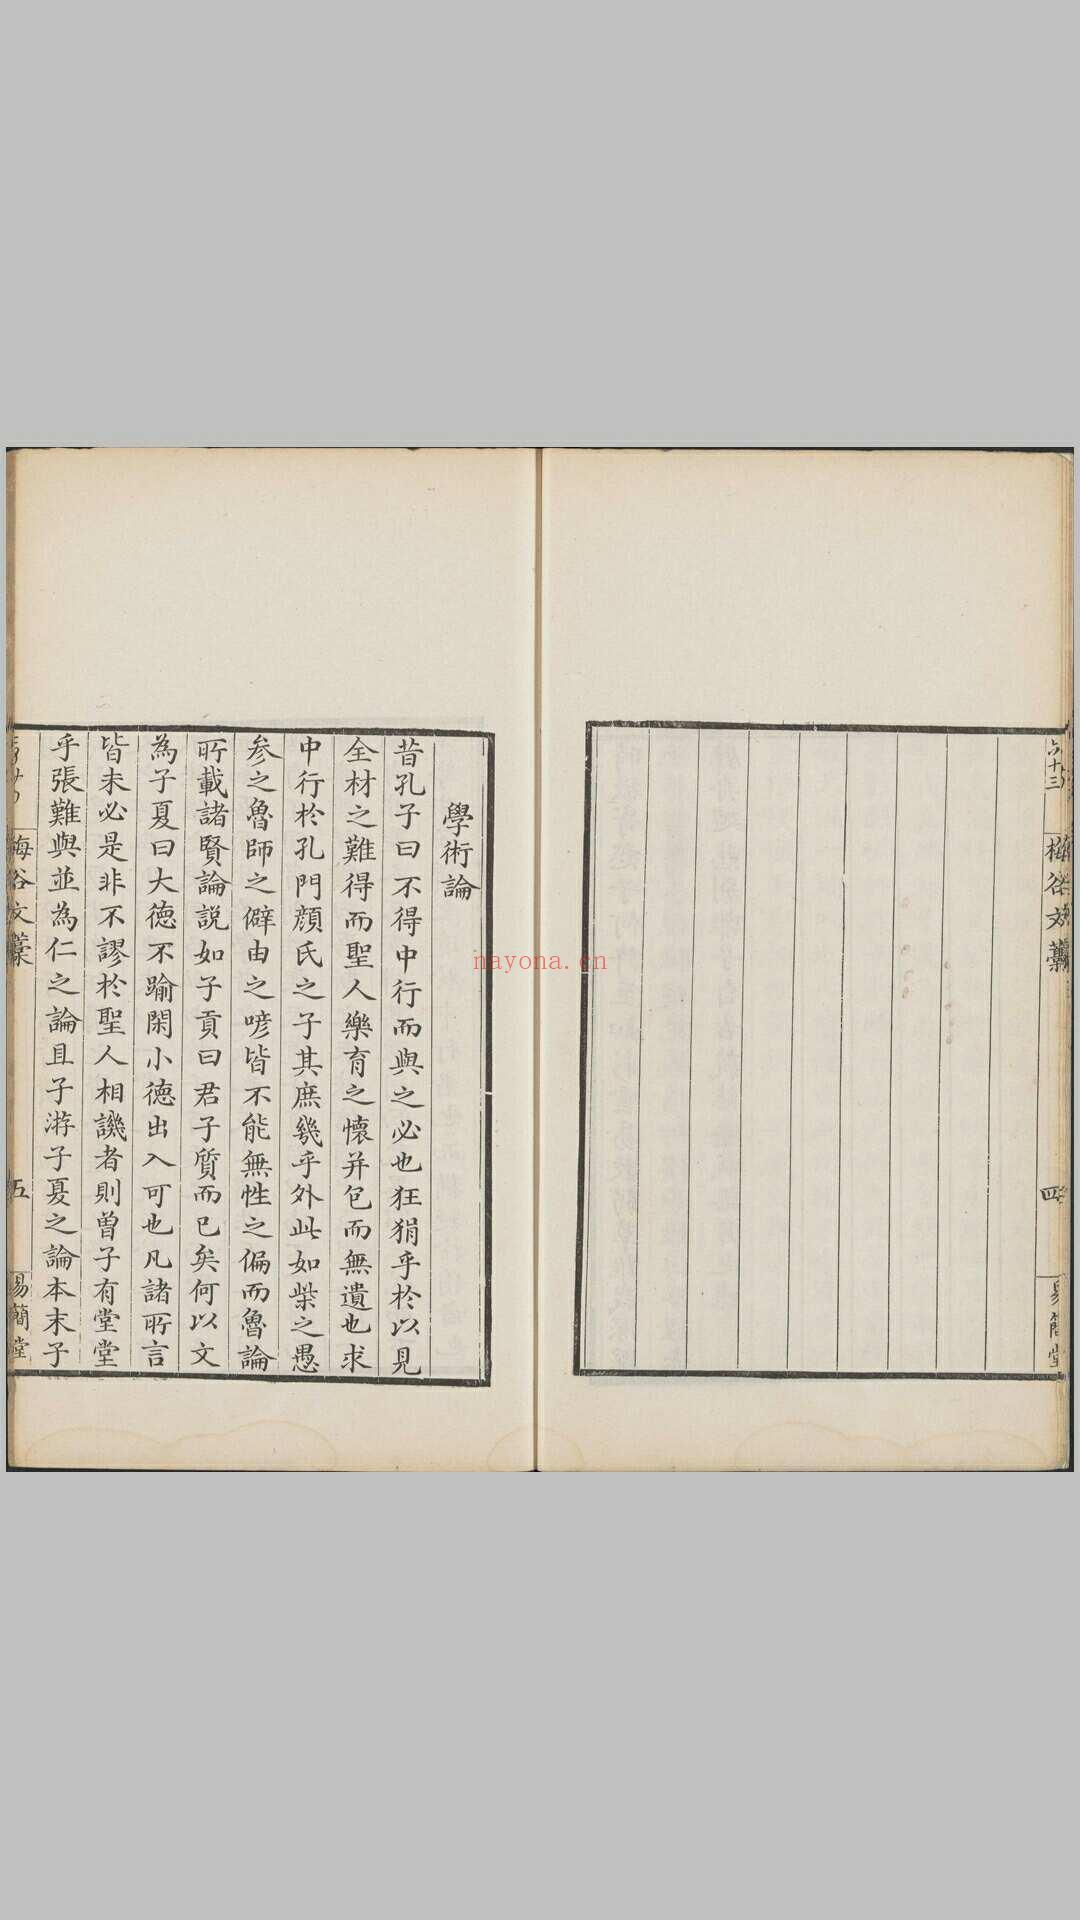 梅谷文藁
四
易簡堂
學術論
昔孔子曰不得中行而與之必也狂狷乎於以見
全材之難得而聖人樂育之懷并包而無遺也求
中行於孔門顔氏之子其庶幾乎外此如柴之愚
參之魯師之僻由之喭皆不能無性之偏而魯論
所載諸賢論説如子貢曰君子質而已矣何以文
為子夏曰大德不踰閑小德出入可也凡諸所言
皆未必是非不謬於聖人相譏者則曾子有堂堂
乎張難與並為仁之論且子游子夏之論本末子
梅谷文藁
五
易簡堂
nayona.cn